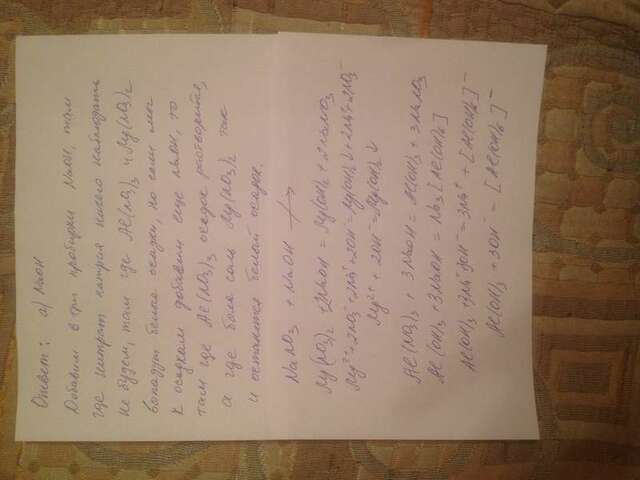 Ответ: а) NaOH
Добавим в три пробирки NaOH, там
где нитрат натрия ничего наблюдать
не будем, там где Al(NO3)3 и Mg(NO3)2
выпадут белые осадки, но если мы
к осадкам добавим еще NaOH, то
там где Al(NO3)3 осадок растворится,
а где была соль Mg(NO3)2 так
и останется белый осадок.
NaNO3 + NaOH ↛
Mg(NO3)2 + 2NaOH = Mg(OH)2 + 2NaNO3
Mg²⁺ + 2NO3⁻ + 2Na⁺ + 2OH⁻ = Mg(OH)2↓ + 2Na⁺ + 2NO3⁻
Mg²⁺ + 2OH⁻ = Mg(OH)2↓
Al(NO3)3 + 3NaOH = Al(OH)3 + 3NaNO3
Al(OH)3 + 3NaOH = Na3[Al(OH)6]
Al(OH)3 + 3Na⁺ 3OH⁻ = 3Na⁺ + [Al(OH)6]⁻
Al(OH)3 + 3OH⁻ = [Al(OH)6]⁻